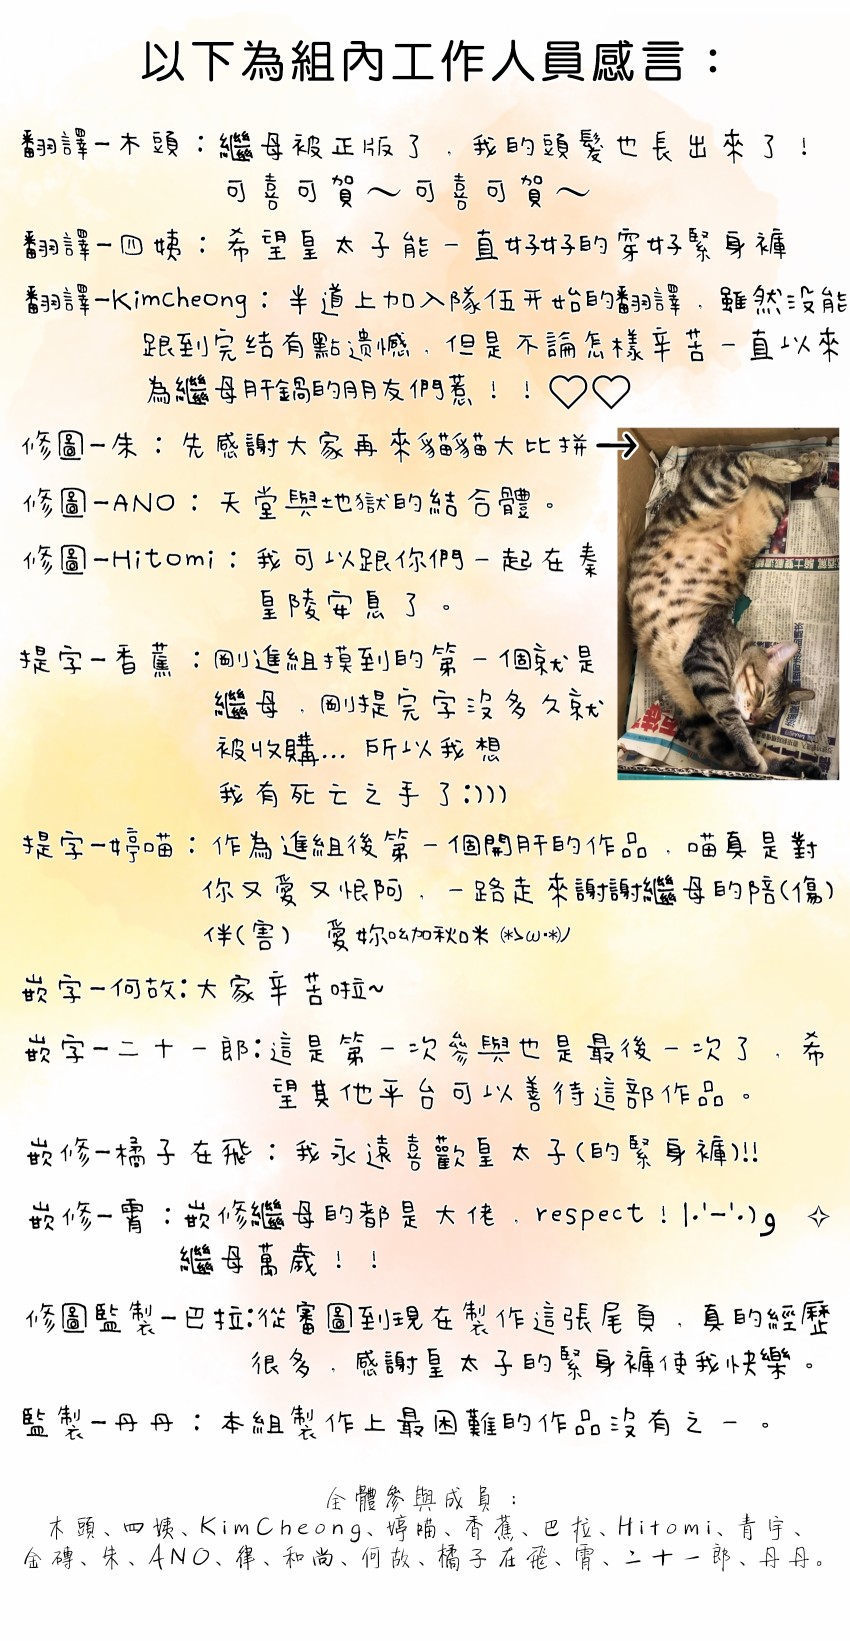 以下為組內工作人員感言：
翻譯－木頭：繼母被正版了，我的頭髮也長出來了！
可喜可賀～可喜可賀～
翻譯－四姨：希望皇太子能一直好好的穿好緊身褲
翻譯－Kimcheong：半道上加入隊伍开始的翻譯，雖然没能
跟到完结有點遗憾，但是不論怎樣辛苦一直以來
為繼母肝鍋的朋友們惹！！♡♡
修圖－朱：先感謝大家再來貓貓大比拼→
修圖－ANO：天堂與地獄的結合體。
修圖－Hitomi：我可以跟你們一起在秦
皇陵安息了。
提字－香蕉：剛進組摸到的第一個就是
繼母，剛提完字沒多久就
被收購... 所以我想
我有死亡之手了:)))
提字－婷喵：作為進組後第一個開肝的作品，喵真是對
你又愛又恨阿，一路走來謝謝繼母的陪(傷)
伴(害) 愛妳呦加秋咪 (*>ω·*)ﾉ
嵌字－何故：大家辛苦啦~
嵌字－二十一郎：這是第一次參與也是最後一次了，希
望其他平台可以善待這部作品。
嵌修－橘子在飛：我永遠喜歡皇太子(的緊身褲)!!
嵌修－霄：嵌修繼母的都是大佬，respect！|·'-'·)و ✧
繼母萬歲！！
修圖監製－巴拉：從審圖到現在製作這張尾頁，真的經歷
很多，感謝皇太子的緊身褲使我快樂。
監製－丹丹：本組製作上最困難的作品沒有之一。
全體參與成員：
木頭、四姨、KimCheong、婷喵、香蕉、巴拉、Hitomi、青宇、
金磚、朱、ANO、律、和尚、何故、橘子在飛、霄、二十一郎、丹丹。